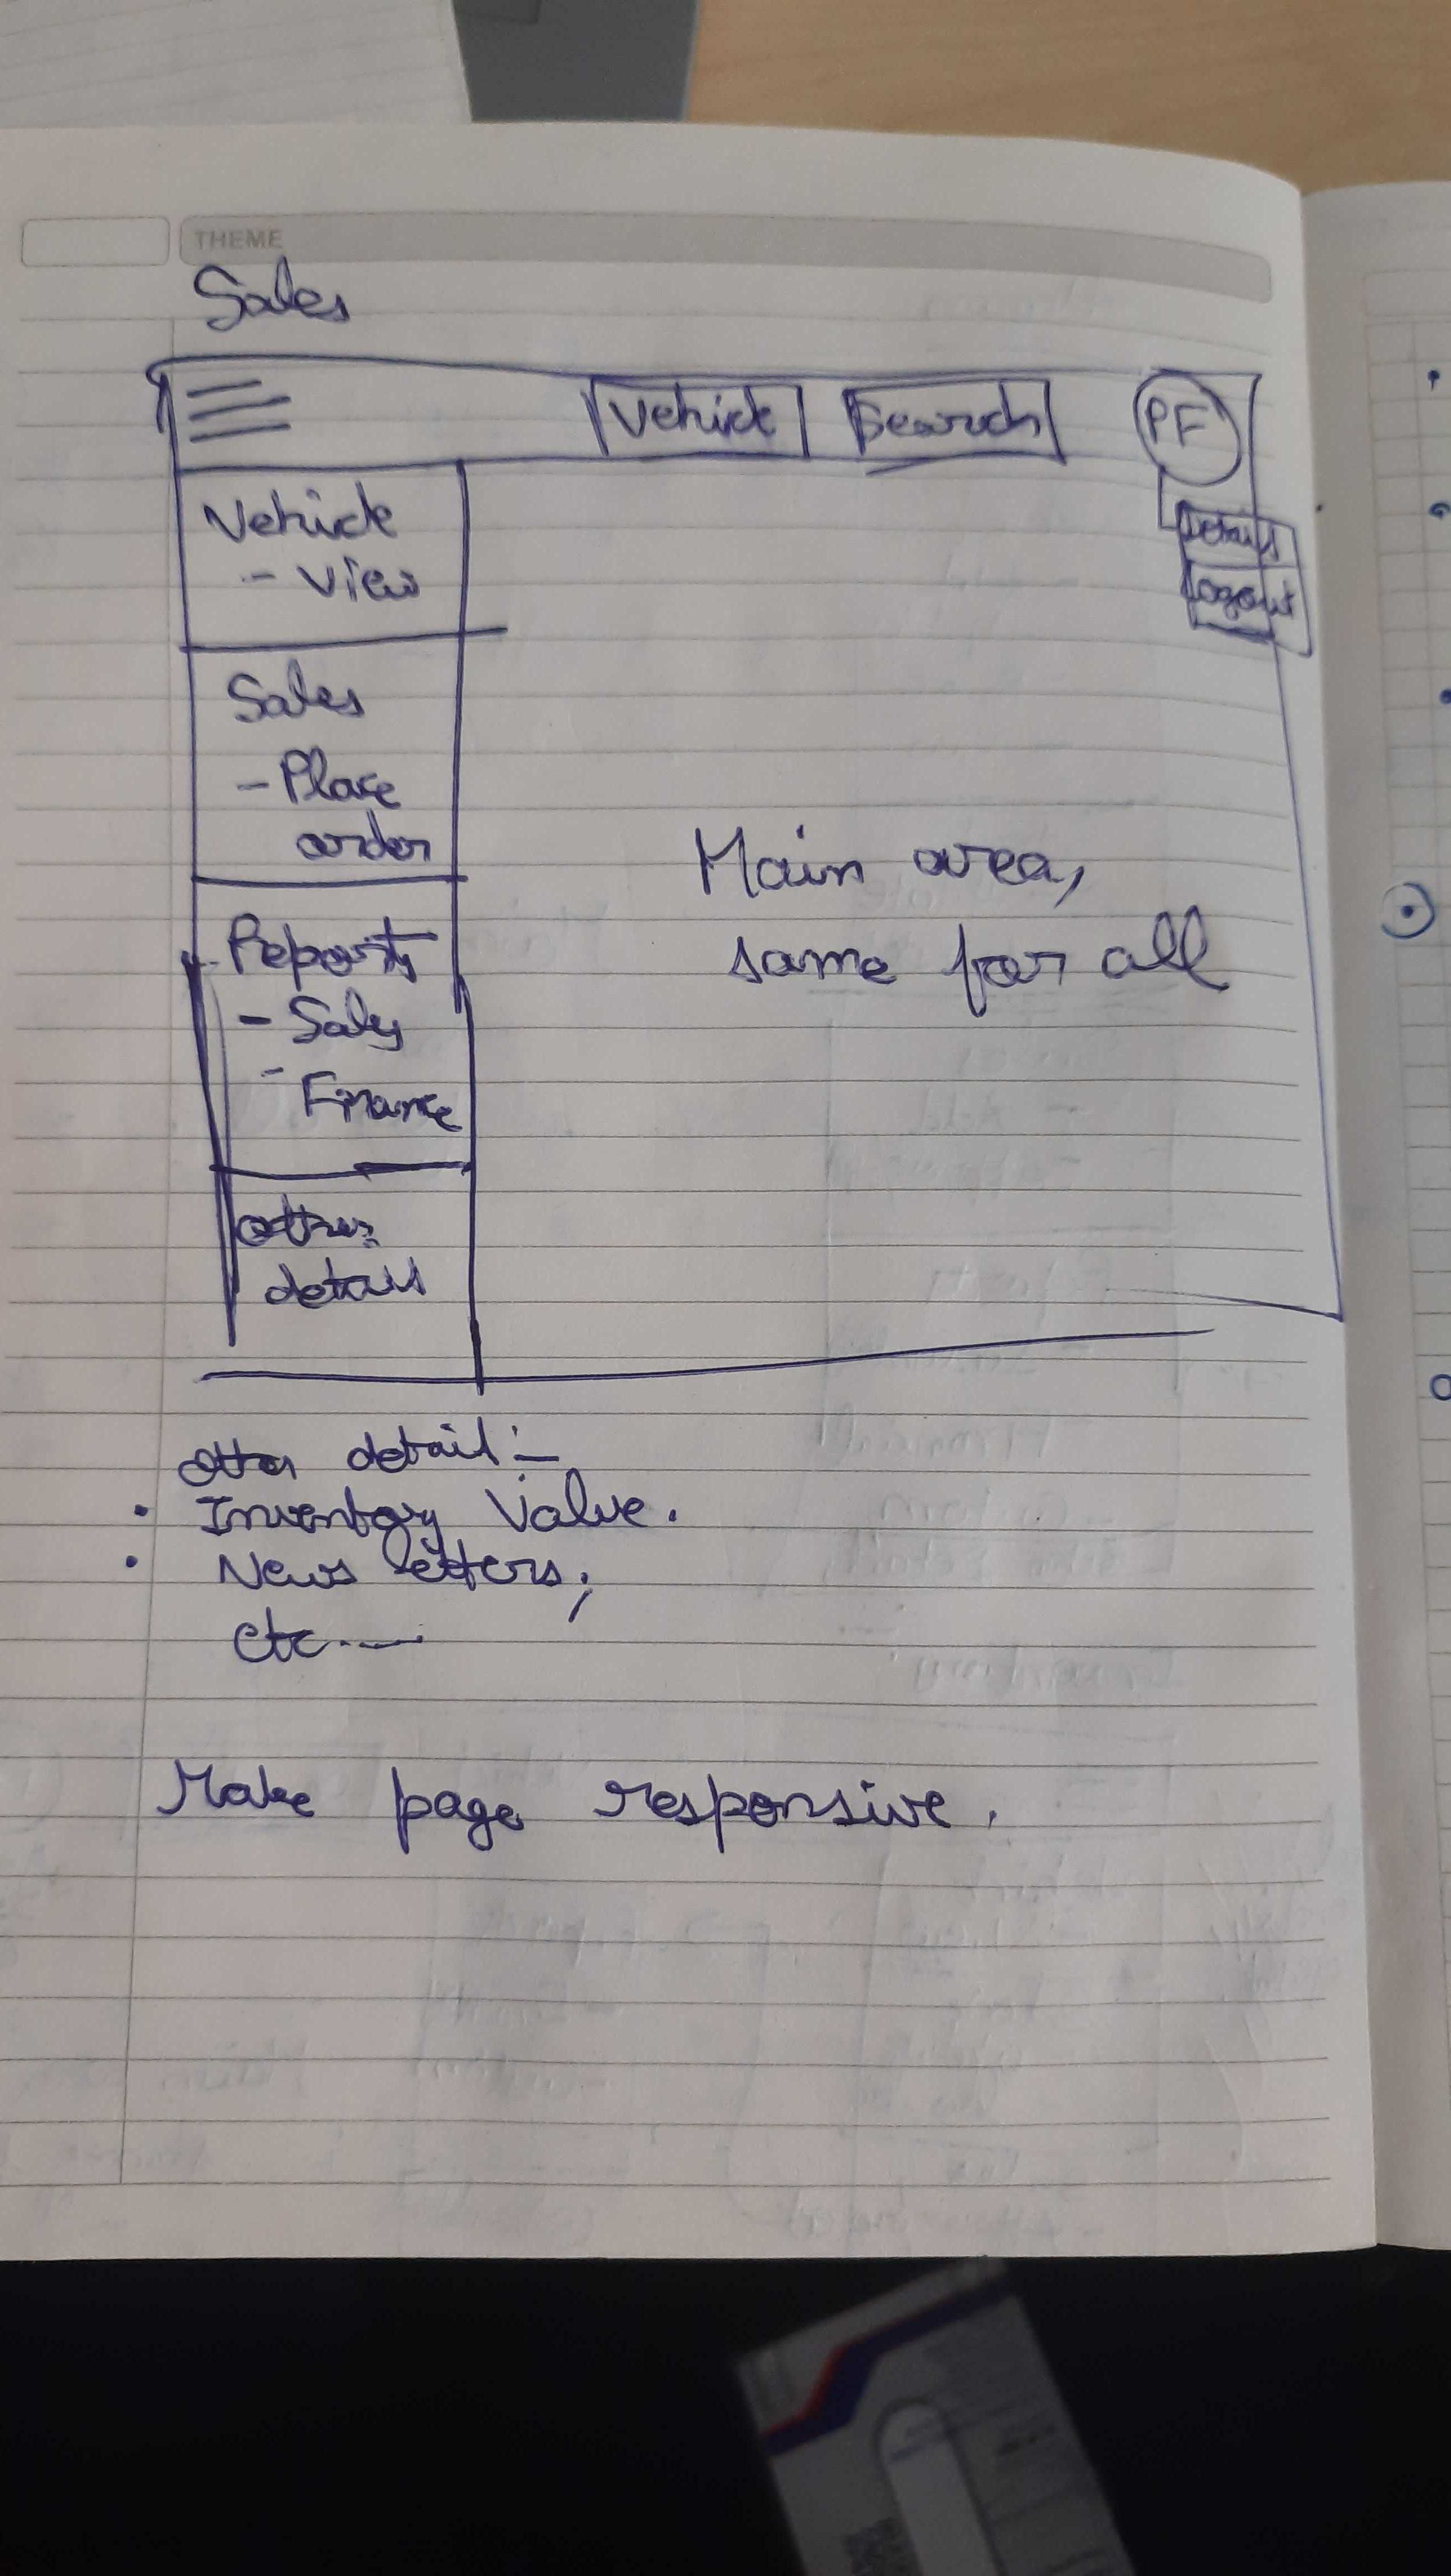 THEME
Sales
Vehicle Search PF
Details
Logout
Vehicle
- View
Sales
- Place
order
Reports
- Sales
- Finance
other
details
Main area,
same for all
other detail :-
• Inventory Value.
• News letters,
etc.
Make page responsive.